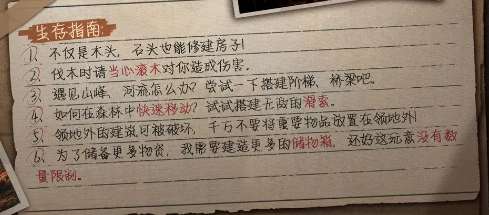 生存指南:
1、不仅是木头，石头也能修建房子!
2、伐木时请当心滚木对你造成伤害。
3、遇见山峰、河流怎么办？尝试一下搭建阶梯、桥梁吧。
4、如何在森林中快速移动？试试搭建无敌的滑索。
5、领地外的建筑可被破坏，千万不要将重要物品放置在领地外!
6、为了储备更多物资，我需要建造更多的储物箱，还好这玩意没有数
量限制。